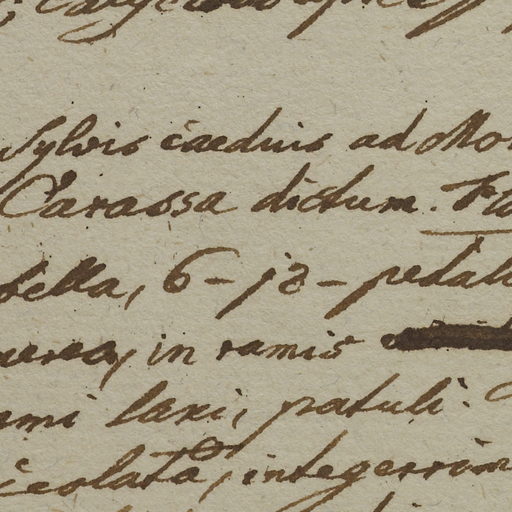 Sylvis caeduis ad Mon
Carassa dictum. Flo
bella, 6-12-pedal
nerea, in ramis
ami laxi, patuli.
ceolata, integerrim